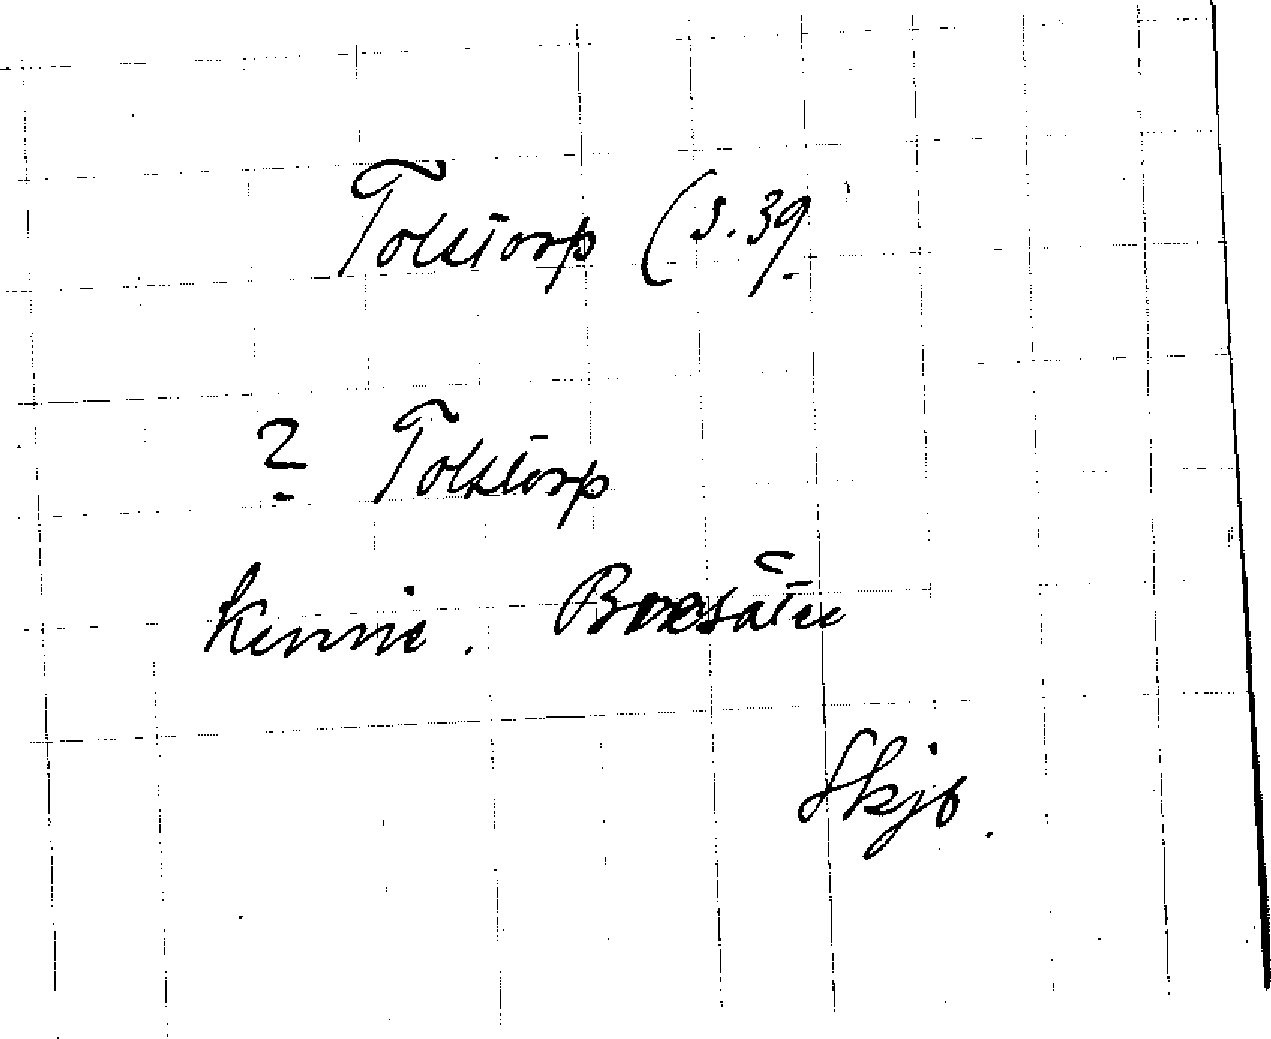 Tolstorp (s. 39.
? Tolstorp
Kinne. Borsäter
Skjö.